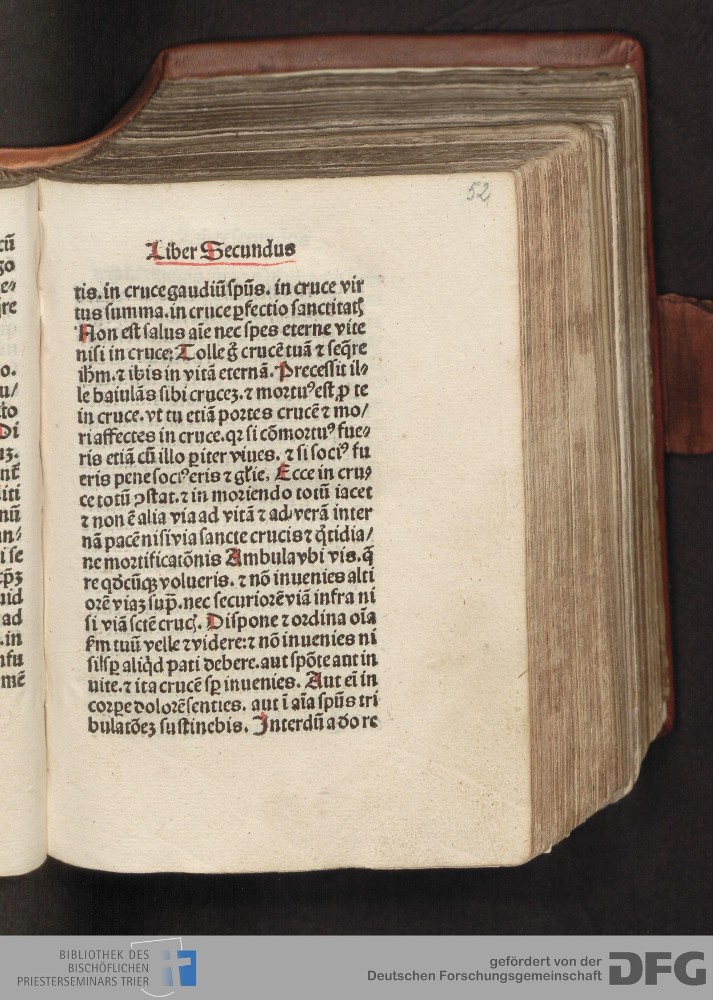 52
Liber Secundus
tis. in cruce gaudiū spūs. in cruce vir
tus summa. in cruce ꝑfectio sanctitatꝭ
Non est salus aīe nec spes eterne vite
nisi in cruce: Tolle gͦ crucē tuā ⁊ seqͥre
ihm̄. ⁊ ibis in vitā eternā. Precessit il⸗
le baiulās sibi crucez. ⁊ mortuꝰ est ꝓ te
in cruce. vt tu etiā portes crucē ⁊ mo/
ri affectes in cruce. qr si cōmortuꝰ fue⸗
ris etiā cū illo ꝑiter viues. ⁊ si sociꝰ fu
eris pene sociꝰ eris ⁊ glīe. Ecce in cru⸗
ce totū ꝯstat. ⁊ in moriendo totū iacet
⁊ non ē alia via ad vitā ⁊ ad verā inter
nā pacē nisi via sancte crucis ⁊ qͦtidia/
ne mortificatōnis Ambula vbi vis. q̄
re qd̓cūqꝫ volueris. ⁊ nō inuenies alti
orē viaꝫ sup̄. nec securiorē viā infra ni
si viā scē crucꝭ. Dispone ⁊ ordina oīa
ẜm tuū velle ⁊ videre: ⁊ nō inuenies ni
si sꝑ aliqͥd pati debere. aut spōte aut in
uite. ⁊ ita crucē sꝑ inuenies. Aut eī in
corꝑe dolorē senties. aut ī aīa spūs tri
bulatōeꝫ sustinebis. Interdū a do re
cū
go
o.
u/
Di
iti
nū
i se
uid
ad
. in
nfu
mē
BIBLIOTHEK DES
BISCHÖFLICHEN
PRIESTERSEMINARS TRIER
gefördert von der
Deutschen Forschungsgemeinschaft
DFG